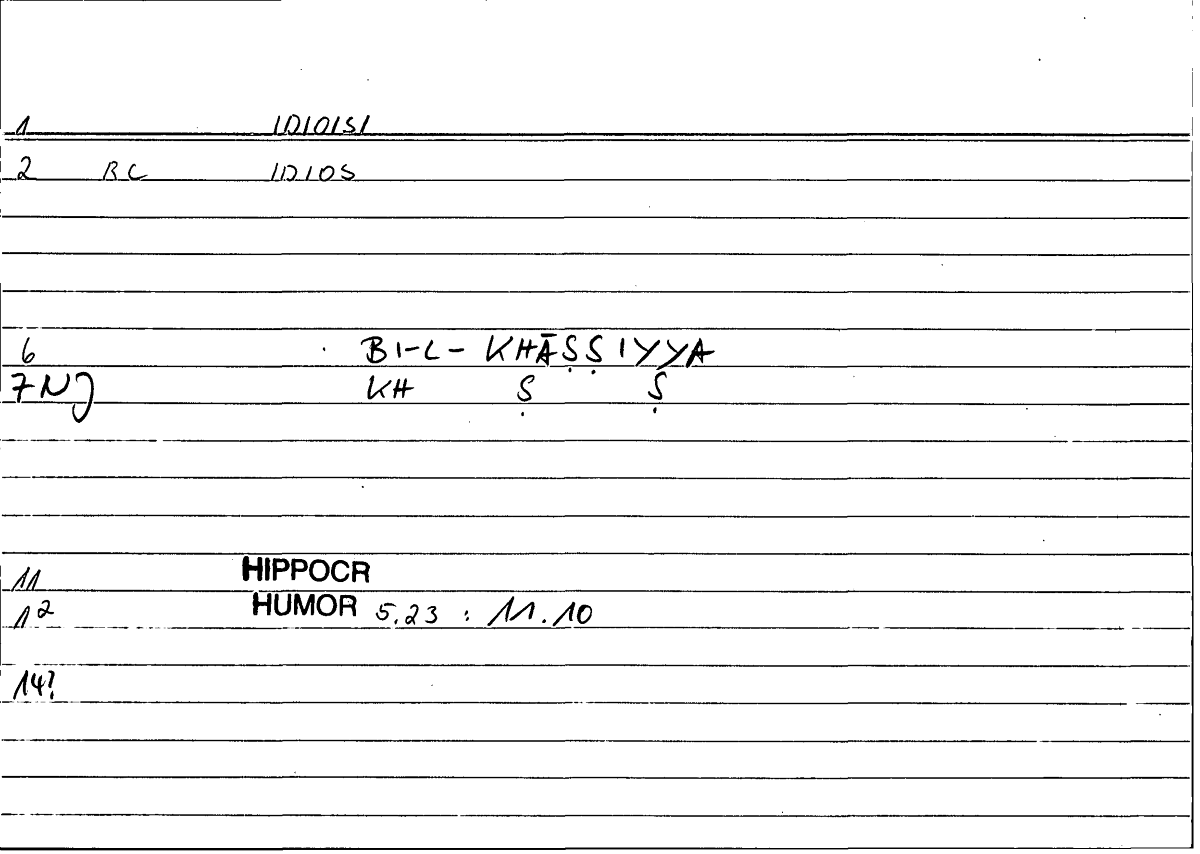 1 IDIOISI
2 BC IDIOS
6 BI-L-KHĀṢṢIYYA
7NJ KH Ṣ Ṣ
11 HIPPOCR
12 HUMOR 5.23 : 11.10
14?